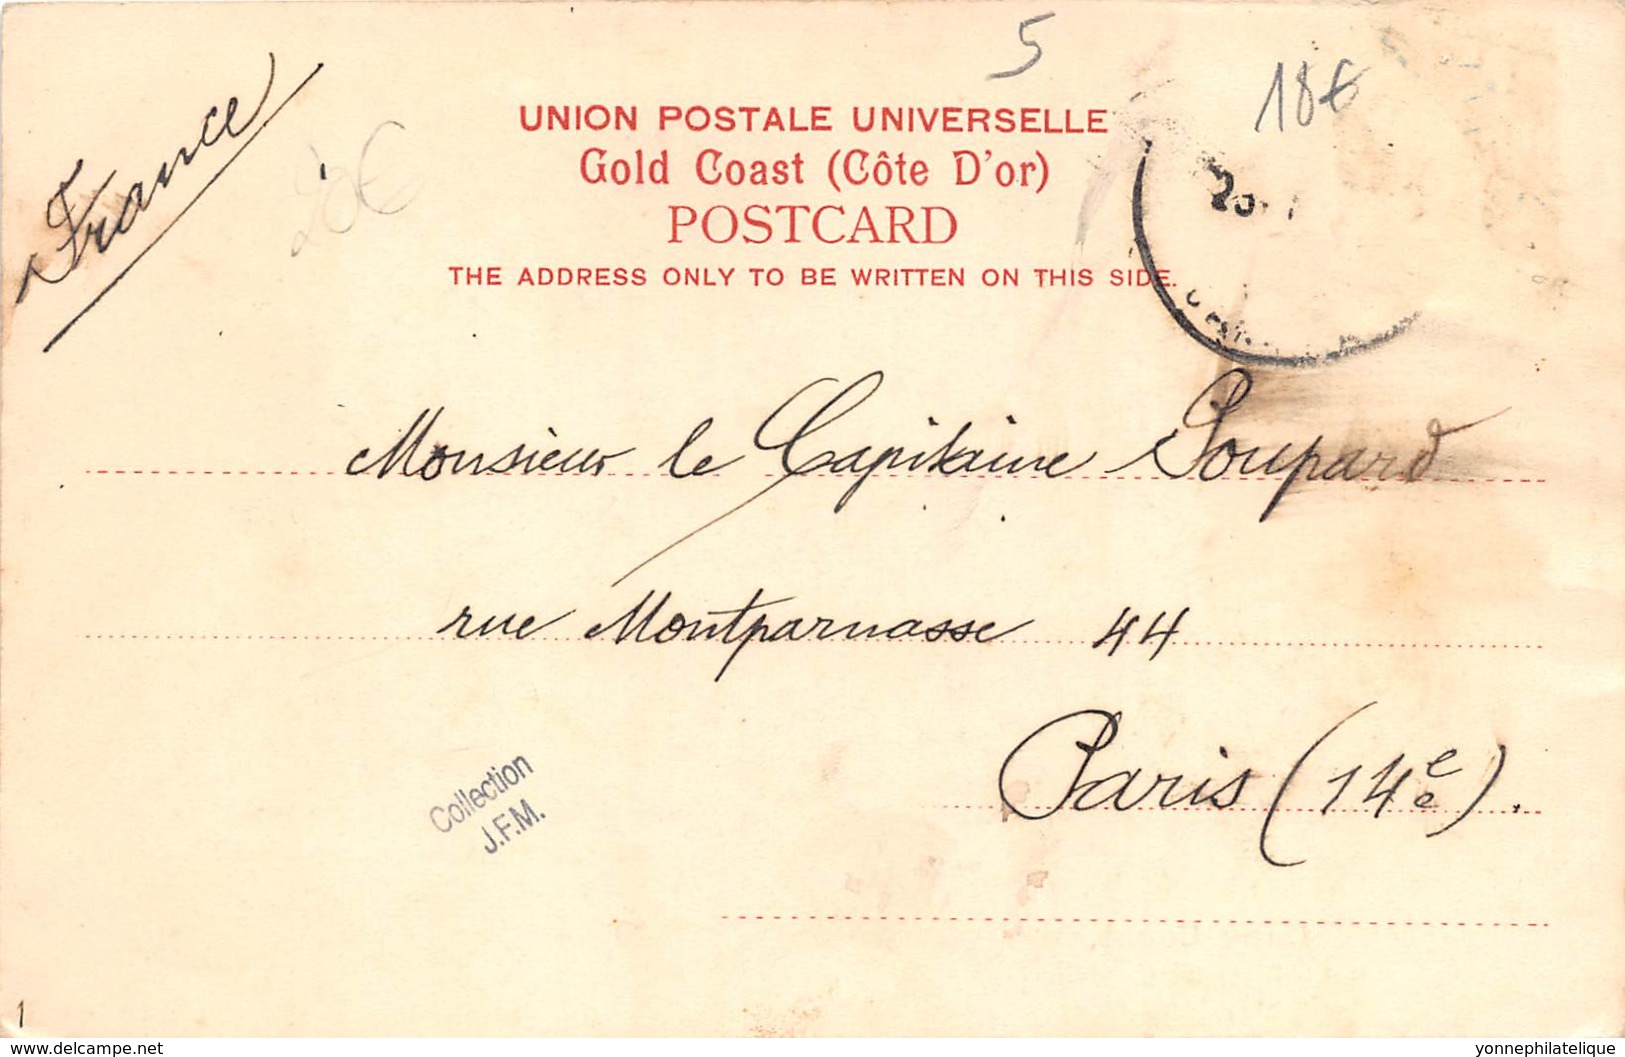 France
5
18€
20€
UNION POSTALE UNIVERSELLE
Gold Coast (Côte D'or)
POSTCARD
THE ADDRESS ONLY TO BE WRITTEN ON THIS SIDE.
Monsieur le Capitaine Poupard
rue Montparnasse 44
Paris (14e).
Collection
J.F.M.
1
delcampe.net
yonnephilatelique